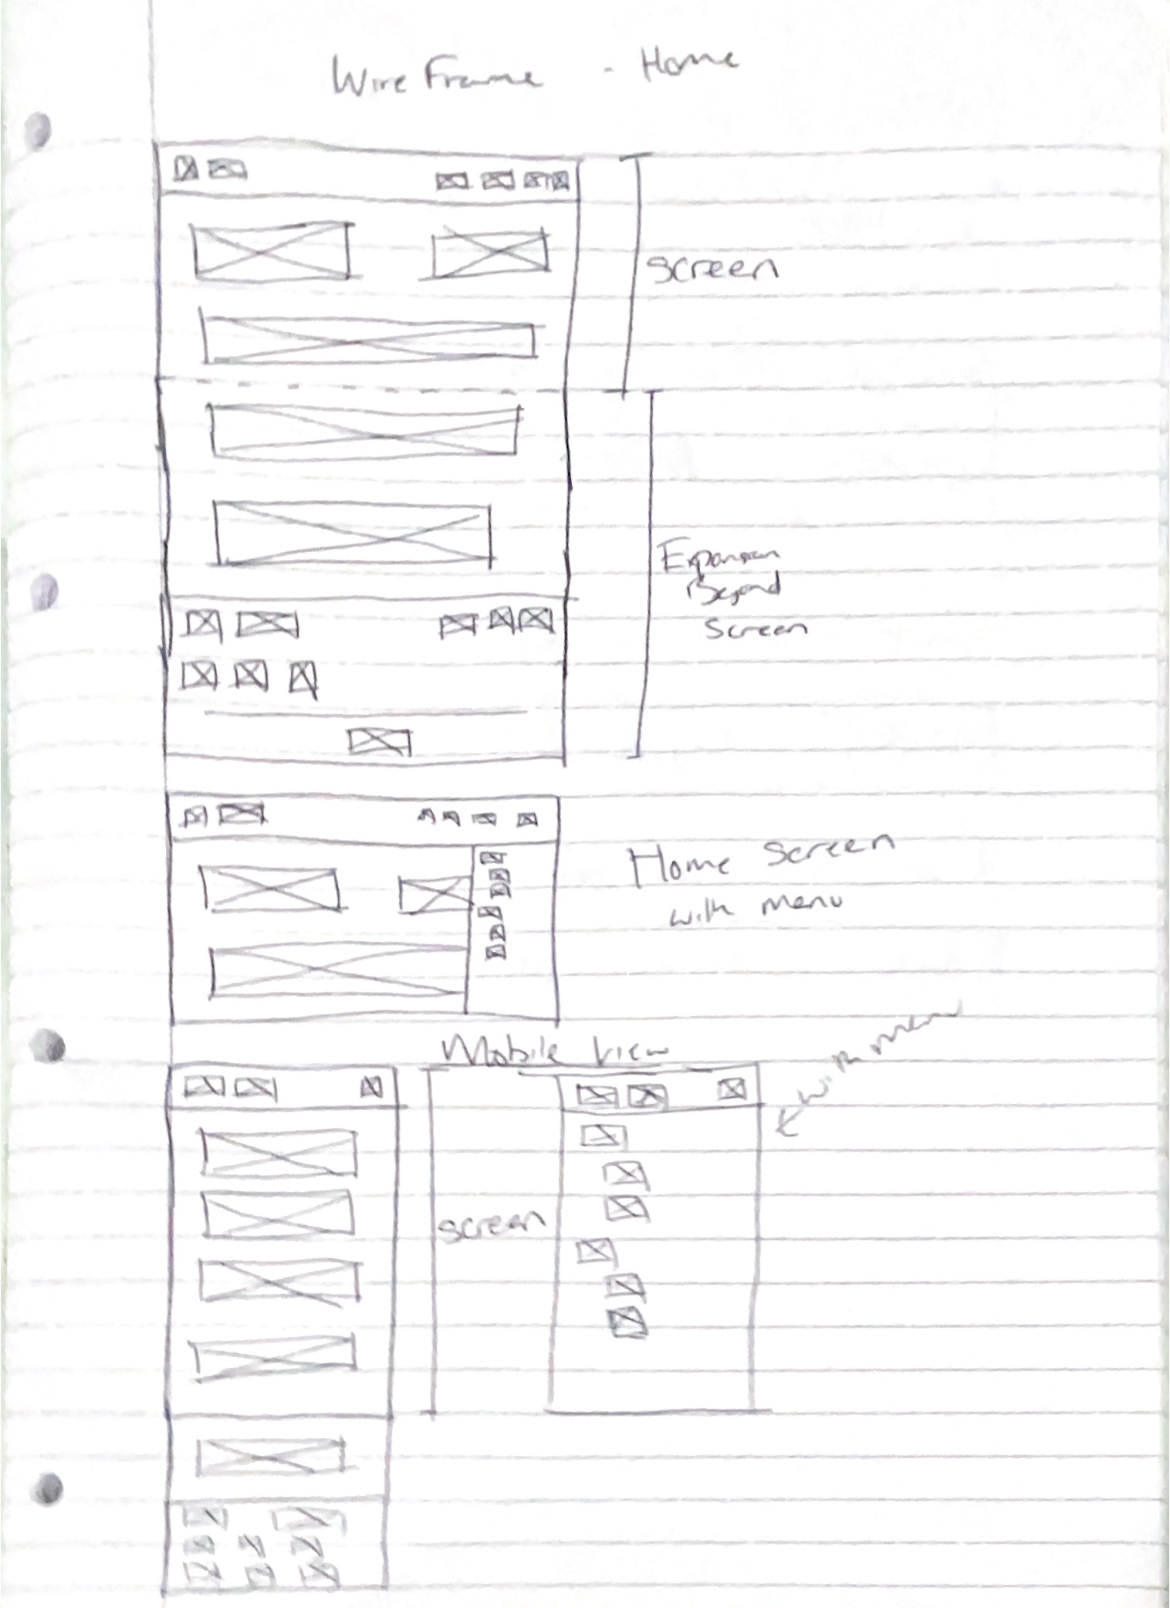 Wire Frame - Home
Screen
Expansion
Beyond
Screen
Home Screen
with menu
Mobile View
with menu
Screen